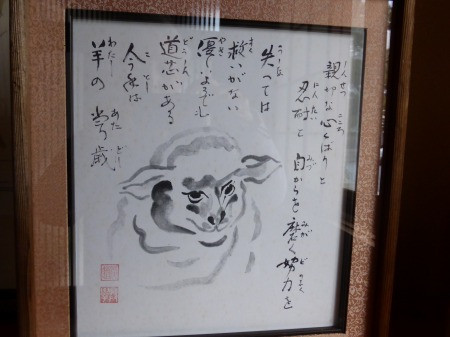 親切な心くばりと
忍耐と 自からを磨く努力を
失っては
救いがない
優しいようでも
道芯がある
今年は
羊の 当歳